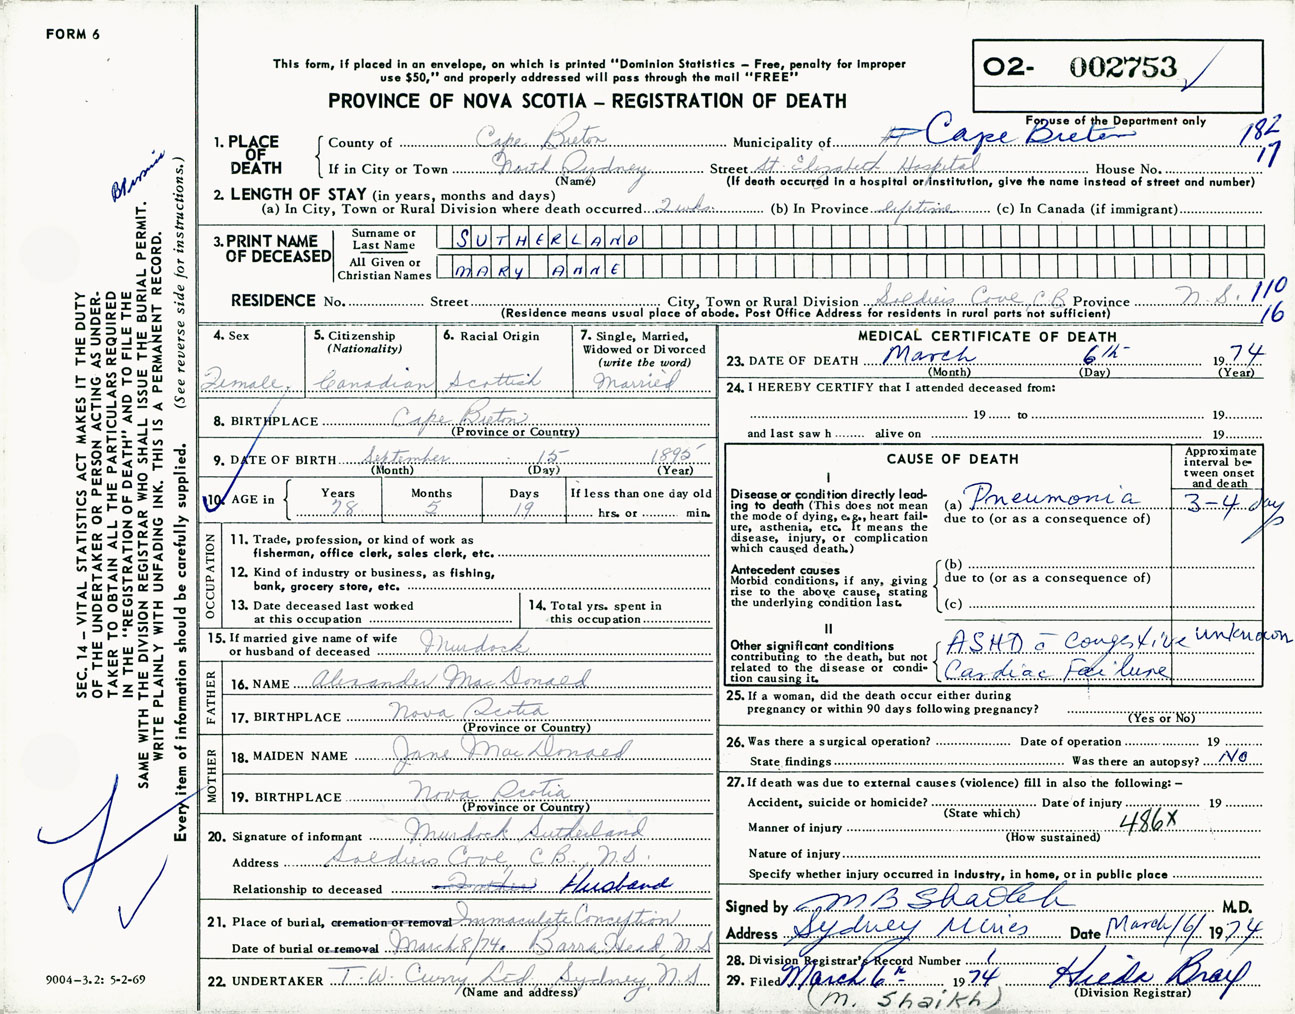 FORM 6
This form, if placed in an envelope, on which is printed "Dominion Statistics – Free, penalty for improper
use $50," and properly addressed will pass through the mail "FREE"
PROVINCE OF NOVA SCOTIA – REGISTRATION OF DEATH
O2- 002753
For use of the Department only
1. PLACE OF DEATH
County of Cape Breton Municipality of Cape Breton 182
If in City or Town North Sydney Street St. Elizabeth Hospital House No. 17
(Name) (If death occurred in a hospital or institution, give the name instead of street and number)
2. LENGTH OF STAY (in years, months and days)
(a) In City, Town or Rural Division where death occurred 2 wks. (b) In Province lifetime (c) In Canada (if immigrant)
3. PRINT NAME OF DECEASED
Surname or Last Name SUTHERLAND
All Given or Christian Names MARY ANNE
RESIDENCE No. Street City, Town or Rural Division Soldiers Cove C.B. Province N.S. 110
(Residence means usual place of abode. Post Office Address for residents in rural parts not sufficient) 16
4. Sex
Female.
5. Citizenship
(Nationality)
Canadian
6. Racial Origin
Scottish
7. Single, Married,
Widowed or Divorced
(write the word)
Married
8. BIRTHPLACE Cape Breton
(Province or Country)
9. DATE OF BIRTH September 15 1895
(Month) (Day) (Year)
10. AGE in
Years Months Days If less than one day old
78 5 19 hrs. or min.
OCCUPATION
11. Trade, profession, or kind of work as
fisherman, office clerk, sales clerk, etc.
12. Kind of industry or business, as fishing,
bank, grocery store, etc.
13. Date deceased last worked
at this occupation
14. Total yrs. spent in
this occupation
15. If married give name of wife
or husband of deceased Murdock
FATHER
16. NAME Alexander MacDonald
17. BIRTHPLACE Nova Scotia
(Province or Country)
MOTHER
18. MAIDEN NAME Jane MacDonald
19. BIRTHPLACE Nova Scotia
(Province or Country)
20. Signature of informant Murdock Sutherland
Address Soldiers Cove, C.B., N.S.
Relationship to deceased Husband
21. Place of burial, cremation or removal Immaculate Conception
Date of burial or removal March 8/74. Barra Head, N.S
22. UNDERTAKER T.W. Curry Ltd, Sydney, N.S
(Name and address)
MEDICAL CERTIFICATE OF DEATH
23. DATE OF DEATH March 6th 1974
(Month) (Day) (Year)
24. I HEREBY CERTIFY that I attended deceased from:
19 to 19
and last saw h alive on 19
CAUSE OF DEATH
Approximate
interval be-
tween onset
and death
I
Disease or condition directly lead-
ing to death (This does not mean
the mode of dying, e.g., heart fail-
ure, asthenia, etc. It means the
disease, injury, or complication
which caused death.)
(a) Pneumonia 3-4 days
due to (or as a consequence of)
Antecedent causes
Morbid conditions, if any, giving
rise to the above cause, stating
the underlying condition last.
(b)
due to (or as a consequence of)
(c)
II
Other significant conditions
contributing to the death, but not
related to the disease or condi-
tion causing it.
ASHD c̄ Congestive unknown
Cardiac Failure
25. If a woman, did the death occur either during
pregnancy or within 90 days following pregnancy?
(Yes or No)
26. Was there a surgical operation? Date of operation 19
State findings Was there an autopsy? NO
27. If death was due to external causes (violence) fill in also the following: –
Accident, suicide or homicide? Date of injury 19
(State which)
Manner of injury 486X
(How sustained)
Nature of injury
Specify whether injury occurred in industry, in home, or in public place
Signed by M B Shaikh M.D.
Address Sydney Mines Date March/6/ 1974
28. Division Registrar's Record Number 1
29. Filed March 6th 1974 Hilda Bray
(M. Shaikh) (Division Registrar)
SEC. 14 – VITAL STATISTICS ACT MAKES IT THE DUTY
OF THE UNDERTAKER OR PERSON ACTING AS UNDER-
TAKER TO OBTAIN ALL THE PARTICULARS REQUIRED
IN THE "REGISTRATION OF DEATH" AND TO FILE THE
SAME WITH THE DIVISION REGISTRAR WHO SHALL ISSUE THE BURIAL PERMIT.
WRITE PLAINLY WITH UNFADING INK. THIS IS A PERMANENT RECORD.
Every item of Information should be carefully supplied. (See reverse side for instructions.)
9004-3.2: 5-2-69